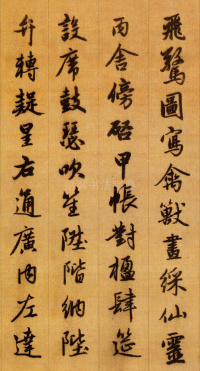 飛驚圖寫禽獸畫綵仙靈
丙舍傍啓甲帳對楹肆筵
設席鼓瑟吹笙陞階納陛
弁轉疑星右通廣内左達